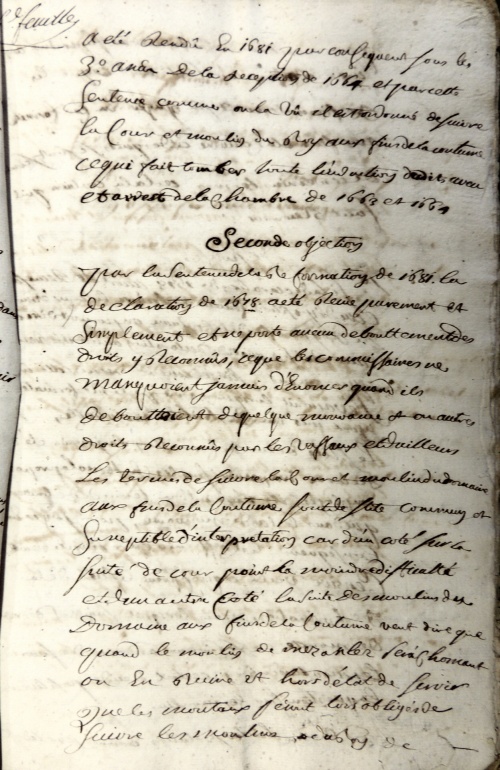 feuille
a été rendu En 1681 par consequent sous les
3º ans de la reception de 1664 et par cette
Sentence comme on la Vu il est ordonné de suivre
la Cour et moulin du Roy aux fins de la coutume
ce qui fait tomber toute l'induction desdits aveu
et arrest de la Chambre de 1663 et 1664
Seconde objection
par la Sentence de la Reformation de 1681 la
declaration de 1678 a eté Reçue purement et
Simplement et ne porte aucun deboutement des
droits y Reconnus, ce que les commissaires ne
Manquoient jamais d'Enoncer quand ils
deboutoient de quelque mouvance et ou autres
droits Reconnus par les Vassaux et d'ailleurs
Les termes de suivre la Cour et moulin du domaine
aux fins de la Coutume sont de stile commun et
Susceptible d'interpretation car d'un coté sur la
suite de cour point la moindre difficulté
et d'un autre Coté la suite des moulins du
Domaine aux fins de la Coutume veut dire que
quand le moulin de Seroit chomant
ou En Ruine et hors d'état de servir
que les moutaux seront lors obligés de
suivre les moulins de